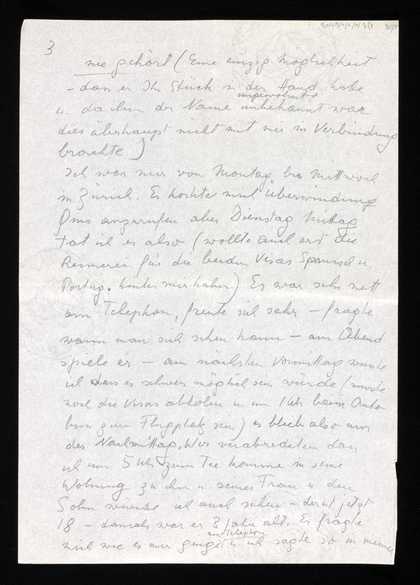 3
nie gehört (Eine einzige Möglichkeit
– dass er Ihr Stück in der Hand habe
u. da ihm der Name unbekannt war
dies überhaupt nicht mit mir in Verbindung
brachte)
Ich war nur von Montag bis Mittwoch
in Zürich. Es kostete mich Überwindung
anzurufen aber Dienstag Mittag
tat ich es also (wollte auch erst die
Rennerei für die beiden Visas Spanisch u.
Portug. hinter mir haben) Es war sehr nett
am Telephon, freute sich sehr – fragte
wann man sich sehen kann – am Abend
spiele er – am nächsten Vormittag wusste
ich dass es schwer möglich sein würde (musste
noch die Visas abholen u. um 1 Uhr beim Auto-
bus zum Flugplatz sein) es blieb also nur
der Nachmittag. Wir verabredeten dass
ich um 5 Uhr zum Tee komme in seine
Wohnung zu ihm u. seiner Frau u. den
Sohn würde ich auch sehen – der ist jetzt
18 – damals war er 3 Jahr alt. Er fragte
am Telephon
mich wie es mir ginge u. ich sagte so in meiner